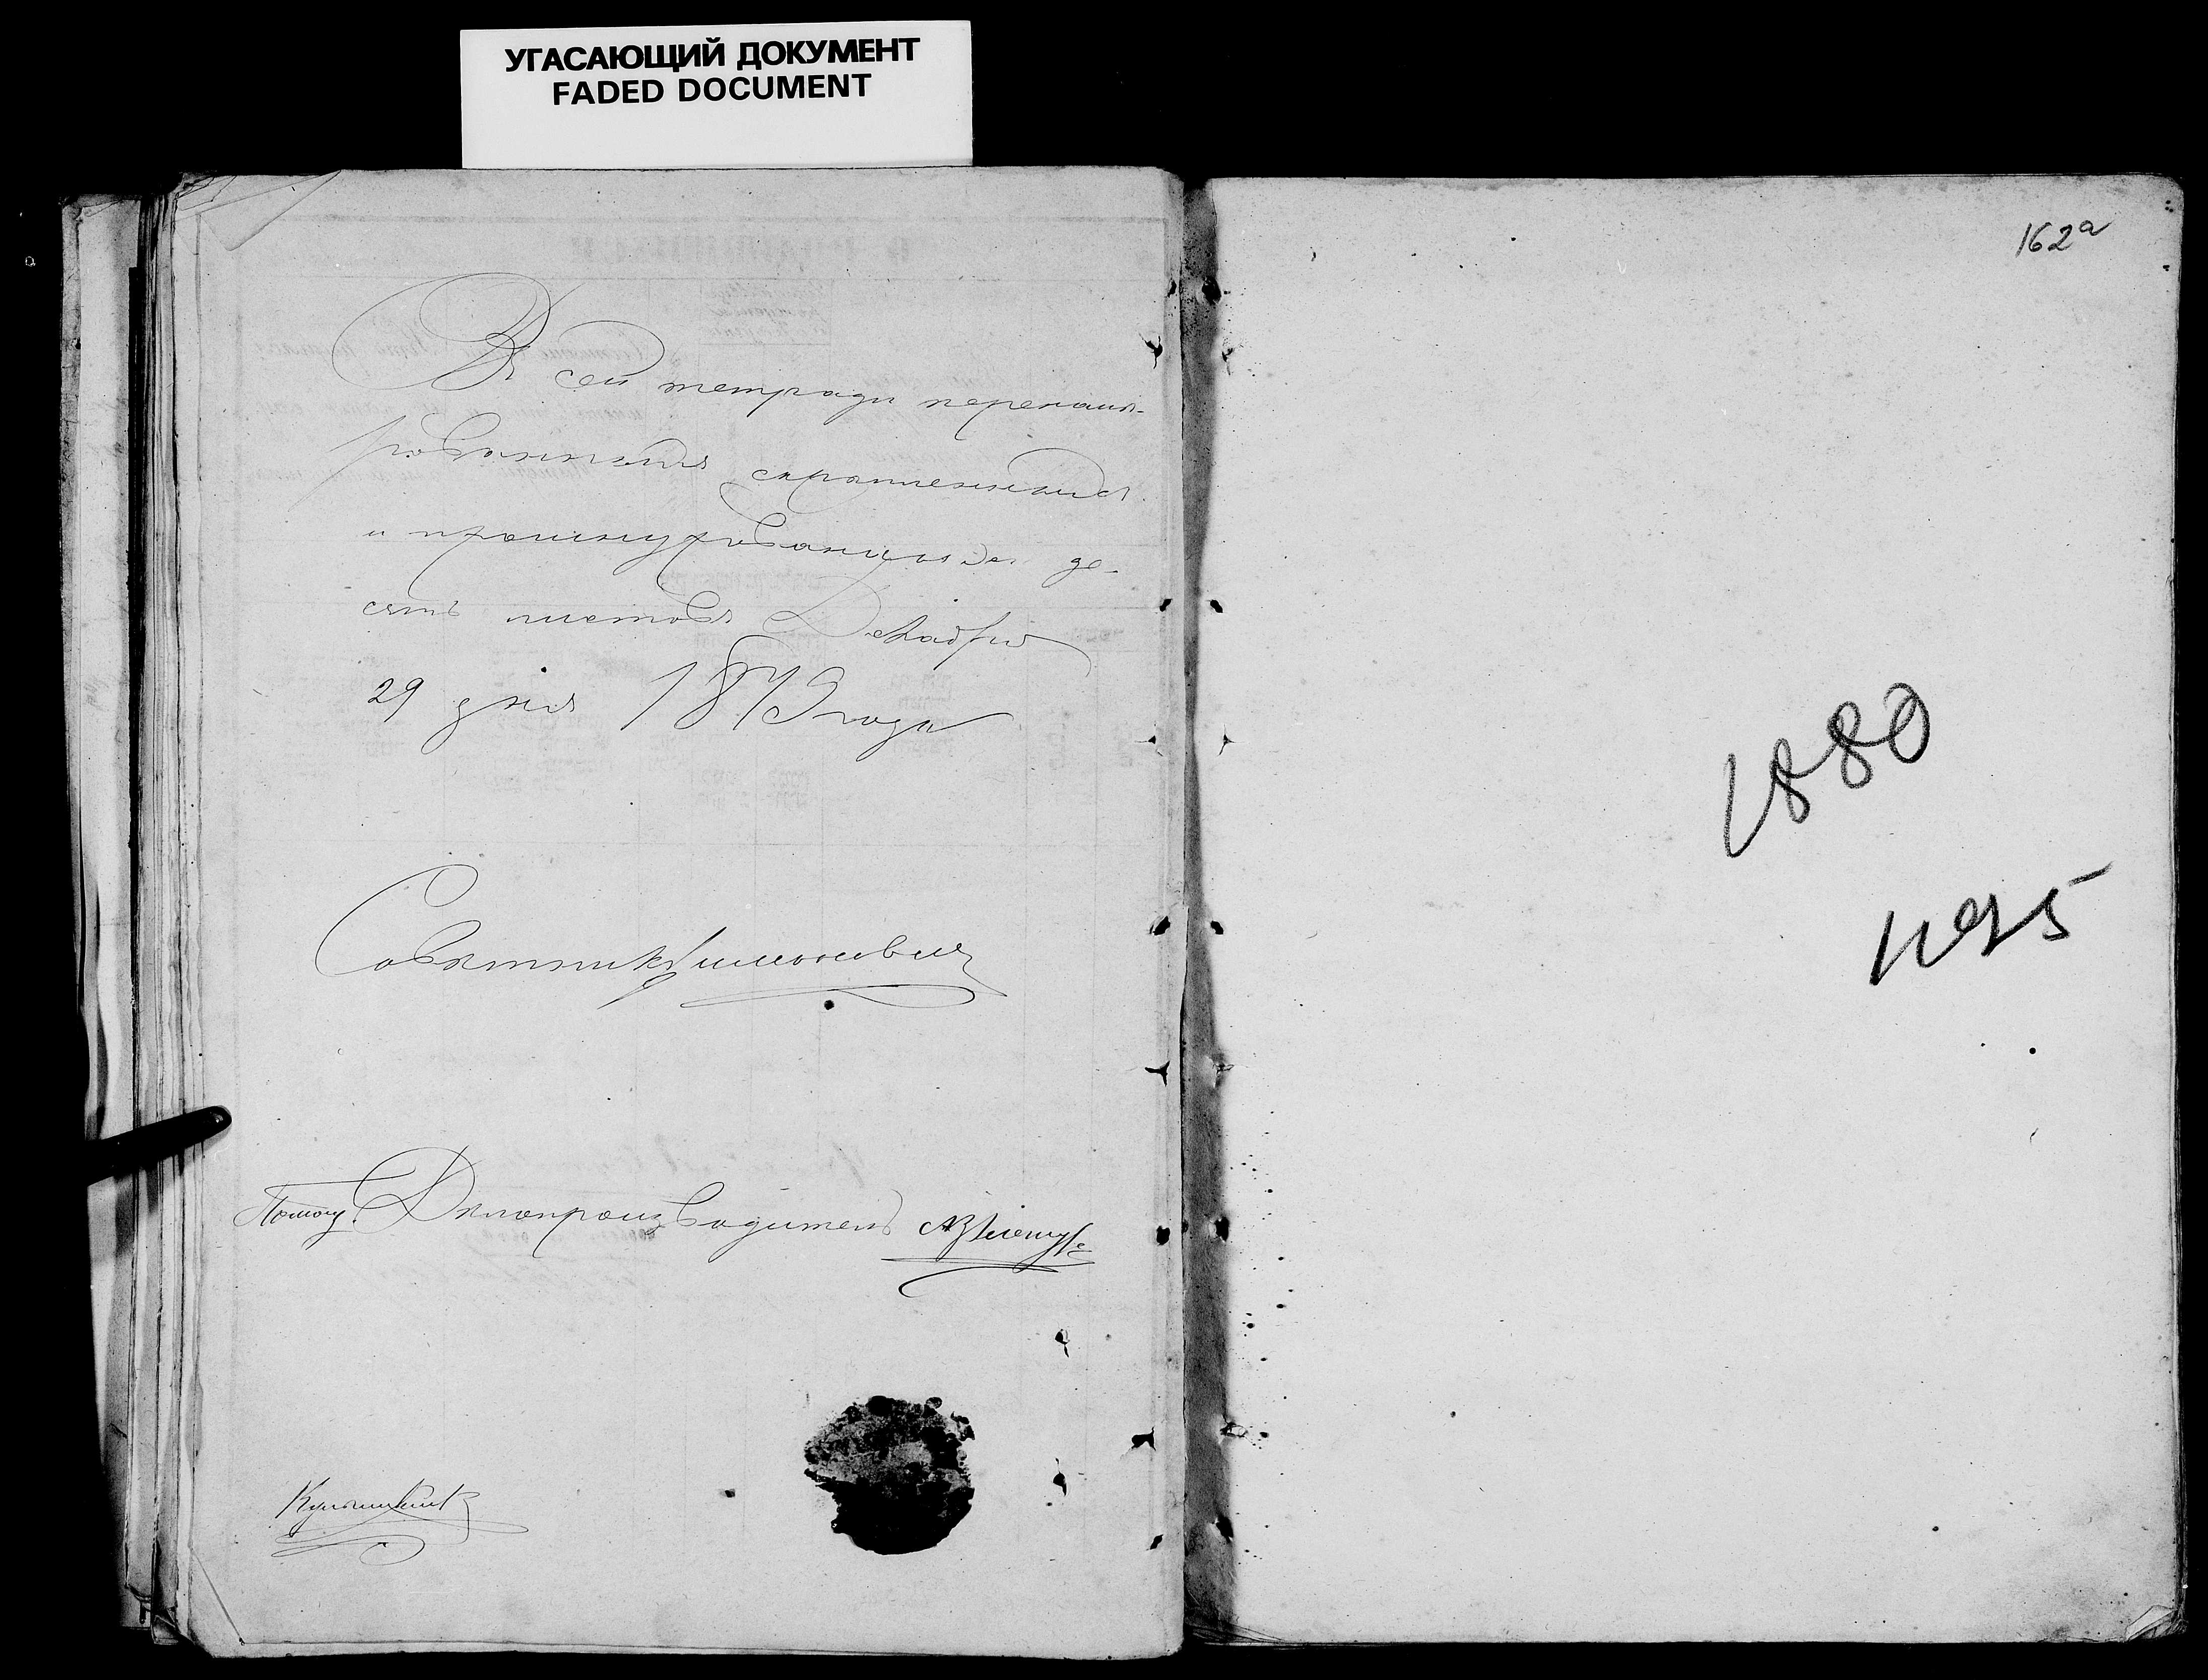 УГАСАЮЩИЙ ДОКУМЕНТ
FADED DOCUMENT
Въ сей тетради перенаме-
рованныхъ скрѣпленныхъ
и прошнурованныхъ де-
сять листовъ Декабря
29 дня 1879 года
Совѣтникъ
Помощ. Дѣлопроизводитель
162а
1880
1195